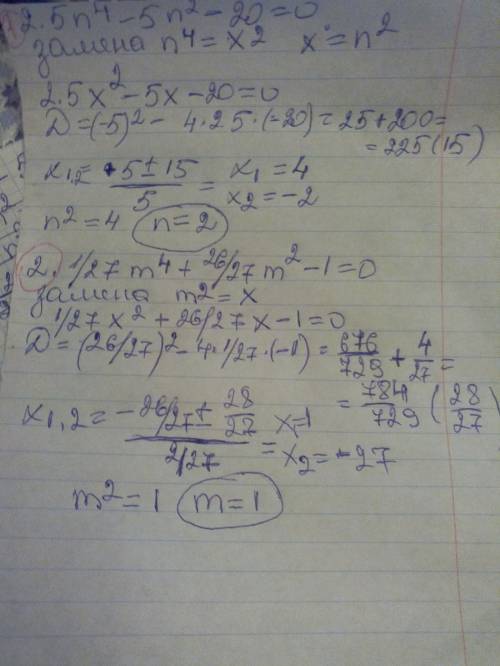 1) 2.5n⁴-5n²-20=0
замена n⁴=x² x=n²
2.5x²-5x-20=0
D=(-5)²-4·2.5·(-20)=25+200=
=225(15)
x₁,₂= (5±15)/5 = x₁=4
x₂=-2
n²=4 n=2
2. 1/27 m⁴+26/27 m²-1=0
замена m²=x
1/27 x²+26/27 x-1=0
D=(26/27)²-4·1/27·(-1)=676/729+4/27=
=784/729 (28/27)
x₁,₂= (-26/27±28/27)/(2/27) = x₁=1
x₂=-27
m²=1 m=1